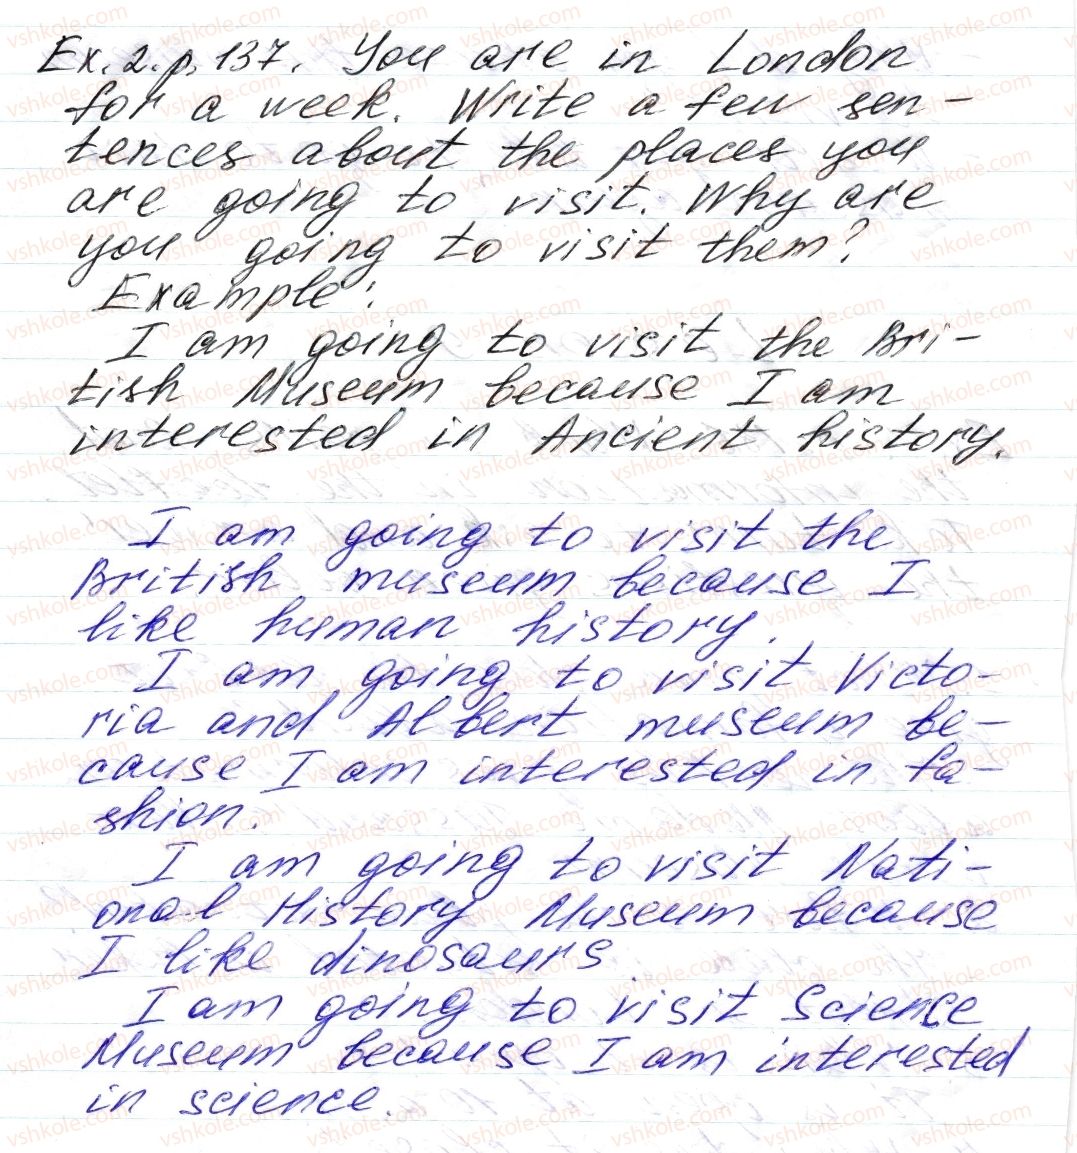 Ex. 2. p. 137. You are in London
for a week. Write a few sen-
tences about the places you
are going to visit. Why are
you going to visit them?
Example:
I am going to visit the Bri-
tish Museum because I am
interested in Ancient history.
I am going to visit the
British museum because I
like human history.
I am going to visit Victo-
ria and Albert museum be-
cause I am interested in fa-
shion.
I am going to visit Nati-
onal History Museum because
I like dinosaurs
I am going to visit Science
Museum because I am interested
in science.
vshkole.com